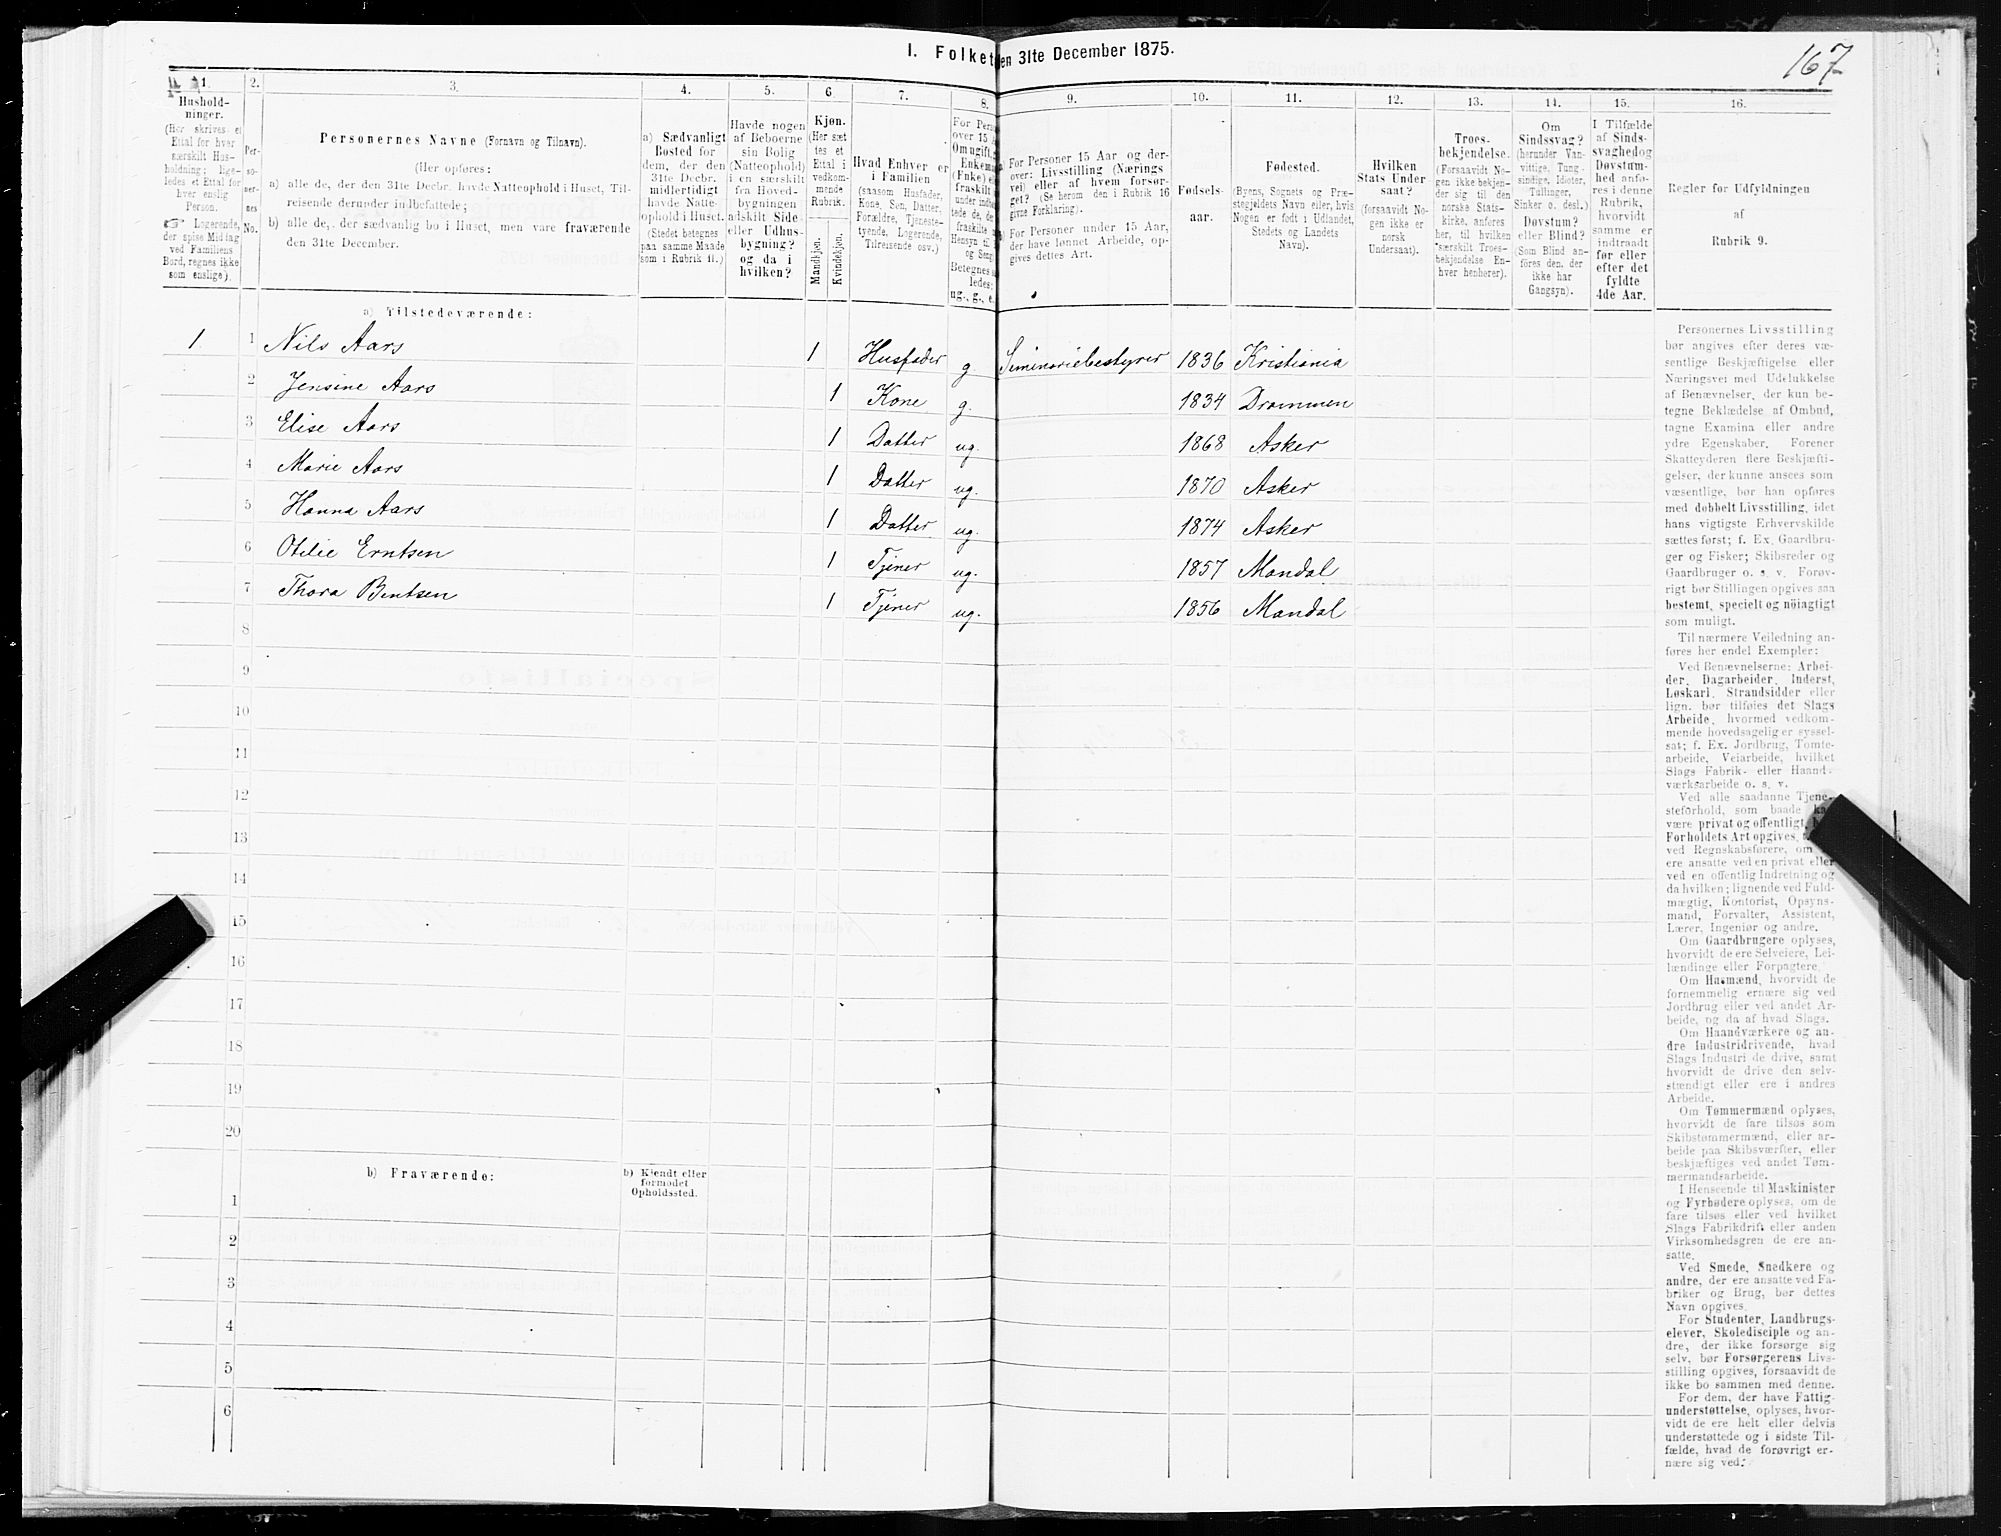 167
I. Folket en 31te December 1875.
1. 2. 3. 4. 5. 6. 7. 8. 9. 10. 11. 12. 13. 14. 15. 16.
Hushold-
ninger.
(Her skrives et
Ettal for hver
særskilt Hus-
holdning; lige-
ledes et Ettal for
hver enslig
Person.
☞ Logerende,
der spise Middag
ved Familiens
Bord, regnes ikke
som enslige).
Per-
so-
ner-
nes
No.
Personernes Navne (Fornavn og Tilnavn).
(Her opføres:
a) alle de, der den 31te Decbr. havde Natteophold i Huset, Til-
reisende derunder indbefattede;
b) alle de, der sædvanlig bo i Huset, men vare fraværende
den 31te December.
a) Sædvanligt
Bosted for
dem, der den
31te Decbr.
midlertidigt
havde Natte-
ophold i Huset.
(Stedet betegnes
paa samme Maade
som i Rubrik 11.)
Havde nogen
af Beboerne
sin Bolig
(Natteophold)
i en særskilt
fra Hoved-
bygningen
adskilt Side-
eller Udhus-
bygning?
og da i
hvilken?
Kjøn.
(Her sæt
tes et
Ettal i
vedkom-
mende
Rubrik.
Mandkjøn.
Kvindekjøn.
Hvad Enhver er
i Familien
(saasom Husfader,
Kone, Søn, Datter,
Forældre, Tjeneste-
tyende, Logerende,
Tilreisende osv.)
For Pers
over 15
Om ugift,
Enkem
(Fnke) e
fraskilt
under indbe
tede de, de
fraskilte
Hensyn til
og Seng
Betegnes
ledes:
ug., g., e.
a) For Personer 15 Aar og der-
over: Livsstilling (Nærings
vei) eller af hvem forsør-
get? (Se herom den i Rubrik 16
givne Forklaring).
b) For Personer under 15 Aar,
der have lønnet Arbeide, op-
gives dettes Art.
Fødsels-
aar.
Fødested.
(Byens, Sognets og Præ-
stegjeldets Navn eller, hvis
Nogen er født i Udlandet,
Stedets og Landets
Navn).
Hvilken
Stats Under
saat?
(forsaavidt No-
gen ikke er
norsk
Undersaat).
Troes-
bekjendelse.
(Forsaavidt No-
gen ikke bekjen-
der sig til den
norske Stats-
kirke, anføres
her, til hvilken
særskilt Troes-
bekjendelse En-
hver henhører).
Om
Sindssvag?
(herunder Van-
vittige, Tung-
sindige, Idioter,
Tullinger,
Sinker o. desl.)
Døvstum?
eller Blind?
(Som Blind an-
føres den. der
ikke har
Gangsyn).
I Tilfælde
af Sinds-
svaghed og
Døvstum-
hed anfø-
res i denne
Rubrik,
hvorvidt
samme er
indtraadt
før eller
efter det
fyldte
4de Aar.
Regler for Udfyldningen
af
Rubrik 9.
a) Tilstedeværende:
1 1 Nils Aars 1 Husfader g. Seminariebestyrer 1836 Kristiania
2 Jensine Aars 1 Kone g. 1834 Drammen
3 Elise Aars 1 Datter ug. 1868 Asker
4 Marie Aars 1 Datter ug. 1870 Asker
5 Hanna Aars 1 Datter ug. 1874 Asker
6 Otilie Erntsen 1 Tjener ug. 1857 Mandal
7 Thora Bentsen 1 Tjener ug. 1856 Mandal
8
9
10
11
12
13
14
15
16
17
18
19
20
b) Fraværende:
b) Kjendt eller
formodet
Opholdssted.
1
2
3
4
5
6
Personernes Livsstilling
bør angives efter deres væ-
sentlige Beskjæftigelse eller
Næringsvei med Udelukkelse
af Benævnelser, der kun be-
tegne Beklædelse af Ombud,
tagne Examina eller andre
ydre Egenskaber. Forener
Skatteyderen flere Beskjæfti-
gelser, der kunne ansees som
væsentlige, bør han opføres
med dobbelt Livsstilling, idet
hans vigtigste Erhvervskilde
sættes først; f. Ex. Gaardbru-
ger og Fisker; Skibsreder og
Gaardbruger o. s. v. Forøv-
rigt bør Stillingen opgives saa
bestemt, specielt og nøiagtigt
som muligt.
Til nærmere Veiledning an-
føres her endel Exempler:
Ved Benævnelserne: Arbei-
der, Dagarbeider, Inderst,
Løskarl, Strandsidder eller
lign. bør tilføies det Slags
Arbeide, hvormed vedkom-
mende hovedsagelig er syssel-
sat; f. Ex. Jordbrug, Tomte-
arbeide, Veiarbeide, hvilket
Slags Fabrik- eller Haand-
værksarbeide o. s. v.
Ved alle saadanne Tjene-
steforhold, som baade ka
være privat og offentligt,
Forholdets Art opgives,
ved Regnskabsførere, om
ere ansatte ved en privat eller
ved en offentlig Indretning og
da hvilken; lignende ved Fuld-
mægtig, Kontorist, Opsyns-
mand, Forvalter, Assistent,
Lærer, Ingeniør og andre.
Om Gaardbrugere oplyses,
hvorvidt de ere Selveiere, Lei-
lændinge eller Forpagtere.
Om Husmænd, hvorvidt de
fornemmelig ernære sig ved
Jordbrug eller ved andet Ar-
beide, og da af hvad Slags.
Om Haandværkere og an-
dre Industridrivende, hvad
Slags Industri de drive, samt
hvorvidt de drive den selv-
stændigt eller ere i andres
Arbeide.
Om Tømmermænd oplyses,
hvorvidt de fare tilsøs som
Skibstømmermænd, eller ar-
beide paa Skibsværfter, eller
beskjæftiges ved andet Tøm-
mermandsarbeide.
I Henseende til Maskinister
og Fyrbødere oplyses, om de
fare tilsøs eller ved hvilket
Slags Fabrikdrift eller anden
Virksomhedsgren de ere an-
satte.
Ved Smede, Snedkere og
andre, der ere ansatte ved Fa-
briker og Brug, bør dettes
Navn opgives.
For Studenter, Landbrugs-
elever, Skoledisciple og an-
dre, der ikke forsørge sig
selv, bør Forsørgerens Livs-
stilling opgives, forsaavidt de
ikke bo sammen med denne.
For dem, der have Fattig-
understøttelse, oplyses, hvor-
vidt de ere helt eller delvis
understøttede og i sidste Til-
fælde, hvad de forøvrigt er-
nære sig ved.